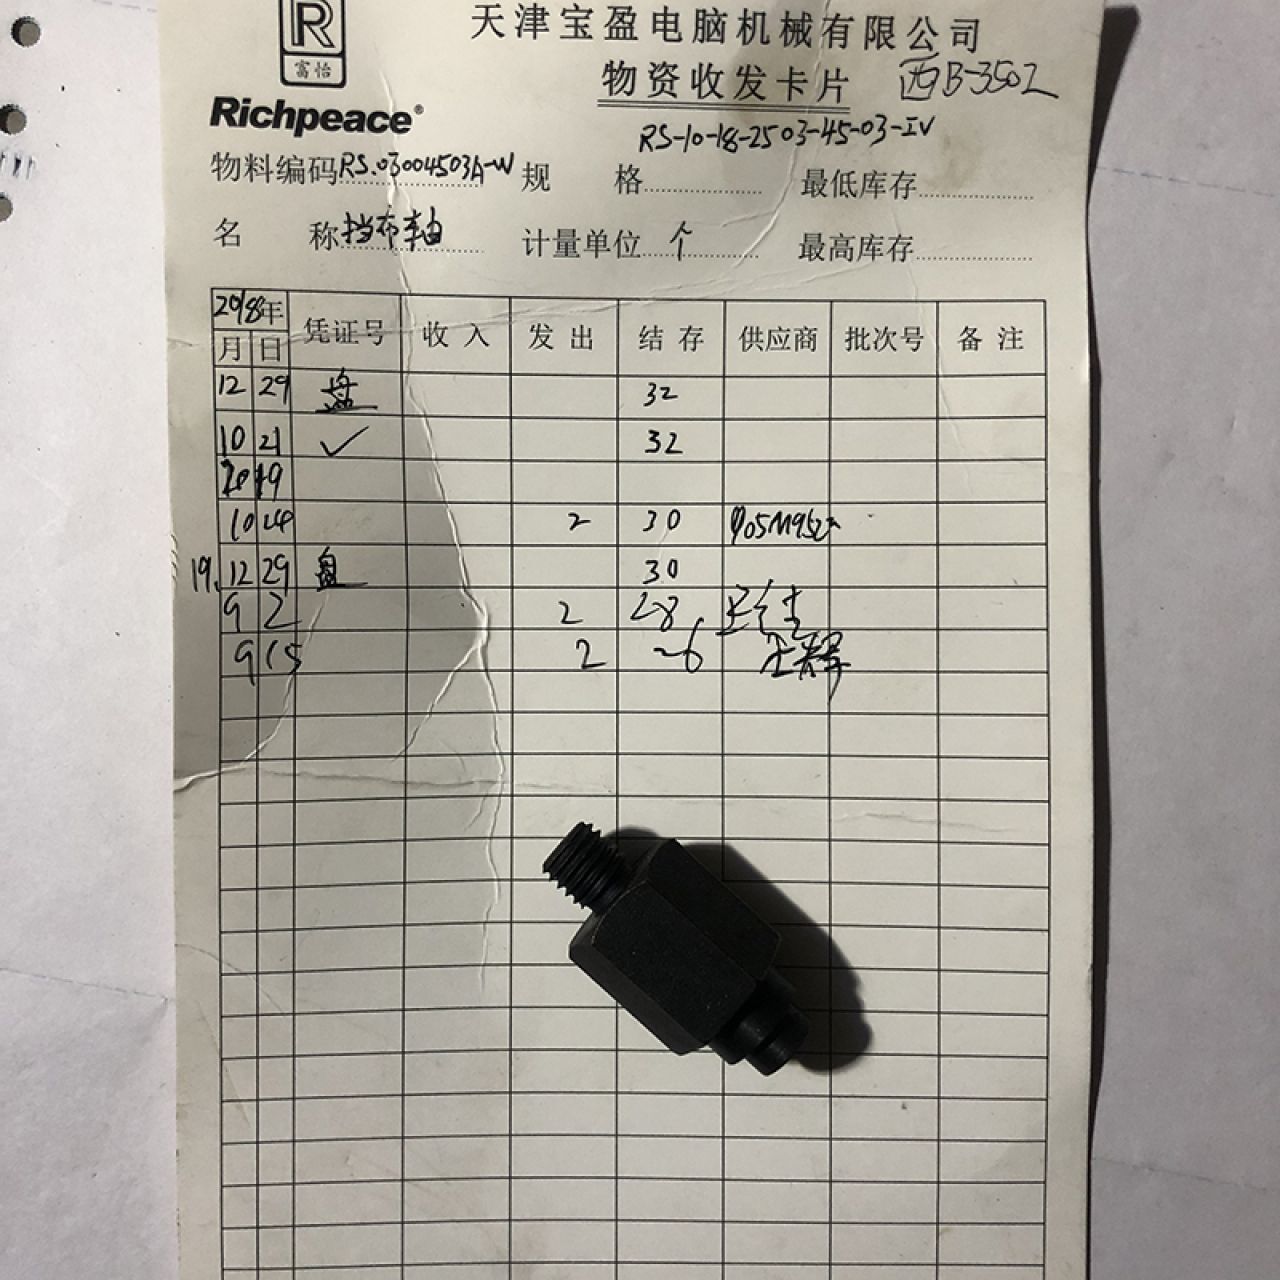 R
富怡
天津宝盈电脑机械有限公司
物资收发卡片 西B-3502
Richpeace®
RS-10-18-2503-45-03-IV
物料编码RS.03004503A-W 规 格 最低库存
名 称 挡布轴 计量单位 个 最高库存
2018年 凭证号 收入 发出 结存 供应商 批次号 备注
月 日
12 29 盘 32
10 21 ✓ 32
2019
10 24 2 30
19. 12 29 盘 30
9 2 2 28
9 15 2 26